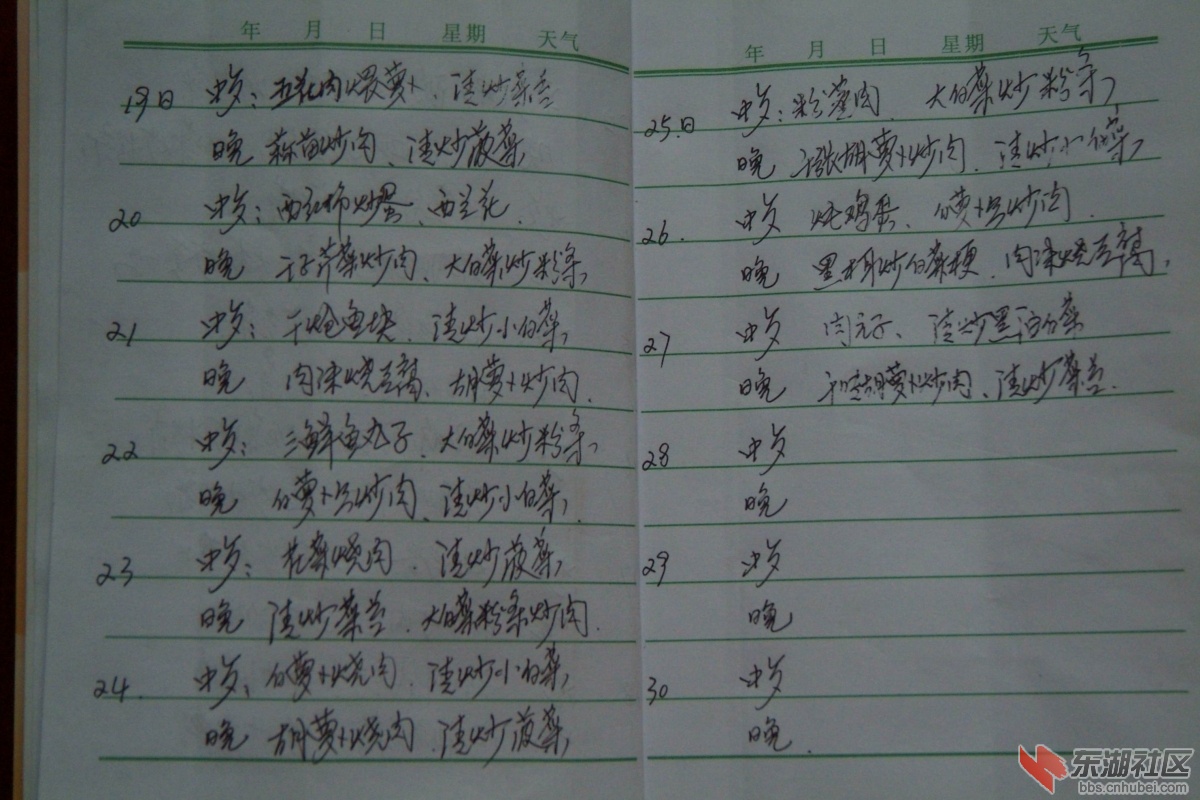 年 月 日 星期 天气
19日 中岁：五花肉煨萝卜、清炒菜苔
晚 蒜苗炒肉、清炒菠菜
20 中岁：西红柿炒蛋、西兰花.
晚 干子芹菜炒肉、大白菜炒粉条
21 中岁：干烧鱼块、清炒小白菜
晚 肉沫烧豆腐、胡萝卜炒肉.
22 中岁：三鲜鱼丸子、大白菜炒粉条
晚 白萝卜丝炒肉、清炒小白菜.
23 中岁：花菜烧肉.清炒菠菜
晚 清炒菜苔.大白菜粉条炒肉.
24. 中岁：白萝卜烧肉.清炒小白菜
晚 胡萝卜烧肉.清炒菠菜
年 月 日 星期 天气
25.日 中岁：粉蒸肉、大白菜炒粉条
晚 千张胡萝卜炒肉、清炒小白菜
26. 中岁 炖鸡蛋、白萝卜丝炒肉.
晚 黑木耳炒白菜梗.肉沫烧豆腐.
27 中岁 肉元子、清炒黑白菜
晚 胡萝卜炒肉、清炒菜苔.
28 中岁
晚
29 中岁
晚
30 中岁
晚.
东湖社区
bbs.cnhubei.com